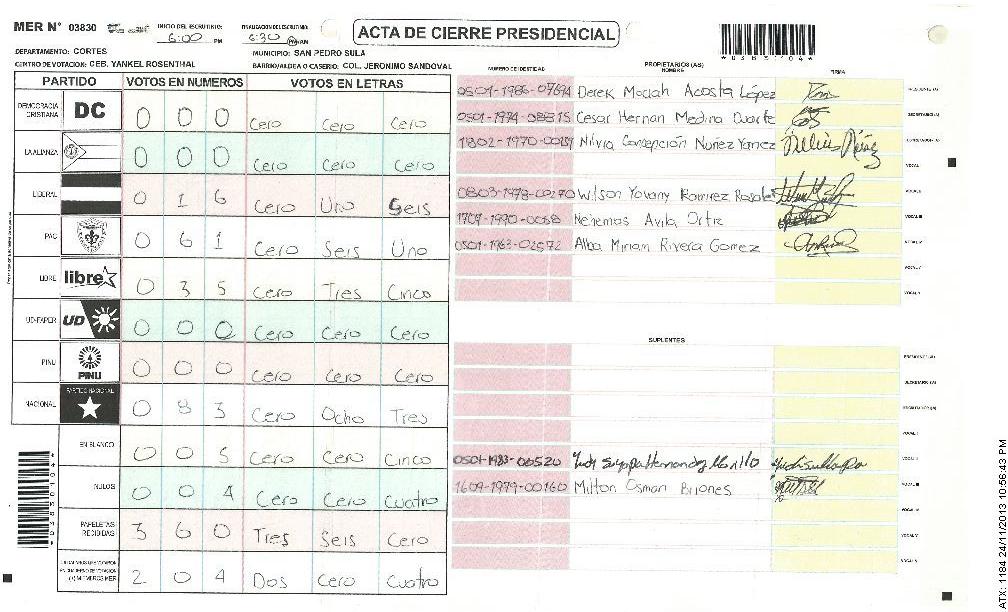 MER N° 03830
INICIO DEL ESCRUTINIO: 6:00 PM
FINALIZACION DEL ESCRUTINIO: 6:30 PM AM
ACTA DE CIERRE PRESIDENCIAL
*03830104*
DEPARTAMENTO: CORTES
MUNICIPIO: SAN PEDRO SULA
CENTRO DE VOTACION: CEB. YANKEL ROSENTHAL
BARRIO/ALDEA O CASERIO: COL. JERONIMO SANDOVAL
PARTIDO VOTOS EN NUMEROS VOTOS EN LETRAS
DEMOCRACIA CRISTIANA DC 0 0 0 Cero Cero Cero
LA ALIANZA 0 0 0 Cero Cero Cero
LIBERAL 0 1 6 Cero Uno Seis
PAC 0 6 1 Cero Seis Uno
LIBRE libre 0 3 5 Cero Tres Cinco
UD-FAPER UD 0 0 0 Cero Cero Cero
PINU PINU 0 0 0 Cero Cero Cero
NACIONAL PARTIDO NACIONAL 0 8 3 Cero Ocho Tres
EN BLANCO 0 0 5 Cero Cero Cinco
NULOS 0 0 4 Cero Cero Cuatro
PAPELETAS RECIBIDAS 3 6 0 Tres Seis Cero
(+) MIEMBROS MER 2 0 4 Dos Cero Cuatro
NUMERO DE IDENTIDAD PROPIETARIOS (AS) NOMBRE FIRMA
0501-1986-07694 Derek Moriah Acosta López PRESIDENTE (A)
0501-1974-08815 Cesar Hernan Medina Duarte SECRETARIO (A)
1802-1970-00139 Nilvia Consepción Nuñez Yanez ESCRUTADOR (A)
VOCAL I
0803-1978-00270 Wilson Yovany Ramirez Rosales VOCAL II
1707-1990-0058 Nehemas Avila Ortiz VOCAL III
0501-1963-02572 Alba Miriam Rivera Gomez VOCAL IV
VOCAL V
VOCAL VI
SUPLENTES
PRESIDENTE (A)
SECRETARIO (A)
ESCRUTADOR (A)
VOCAL I
0501-1983-00520 VOCAL II
1609-1979-00160 Milton Osman Briones VOCAL III
VOCAL IV
VOCAL V
VOCAL VI
ATX: 1184 24/11/2013 10:56:43 PM